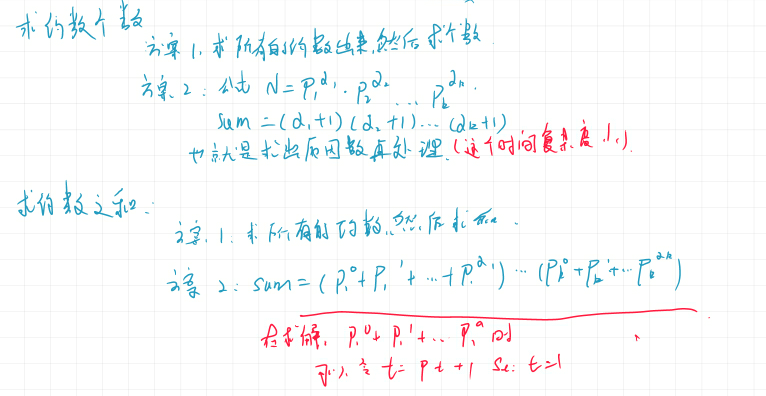 求约数个数
方案1. 求所有的约数出来,然后求个数
方案2: 公式 N=P₁^α₁·P₂^α₂ … Pₖ^αₖ.
sum=(α₁+1)(α₂+1)…(αₖ+1)
也就是求出质因数再处理.(这个时间复杂度小).
求约数之和:
方案.1: 求所有的约数,然后求和.
方案2: sum=(P₁⁰+P₁¹+…+P₁^α₁)…(Pₖ⁰+Pₖ¹+…Pₖ^αₖ)
在求解, P₁⁰+P₁¹+…P₁^a 时
可以令 t=Pt+1 t=1